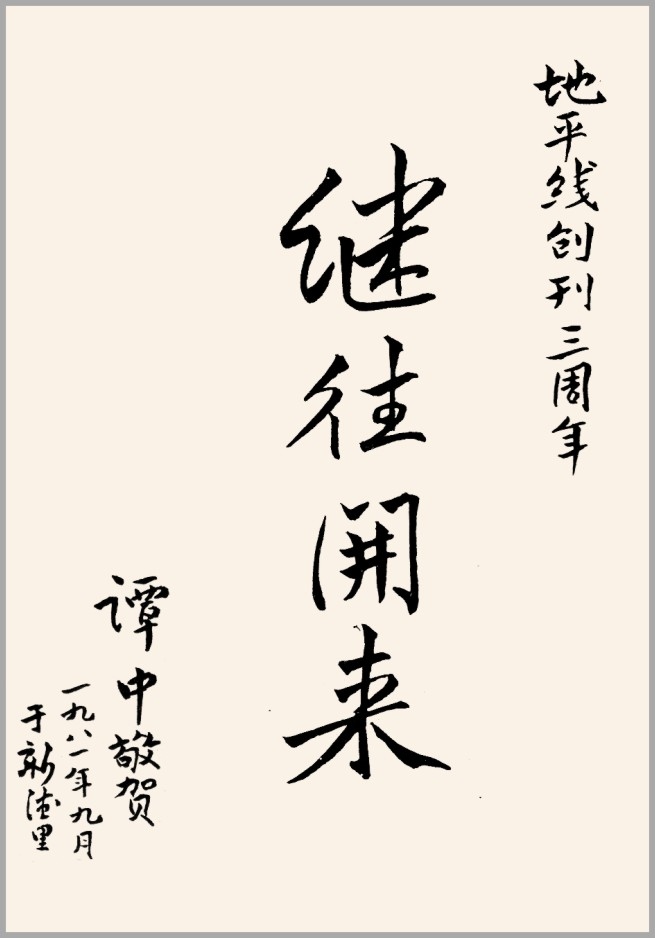 地平线创刊三周年
继往開来
谭中敬贺
一九八一年九月
于新德里